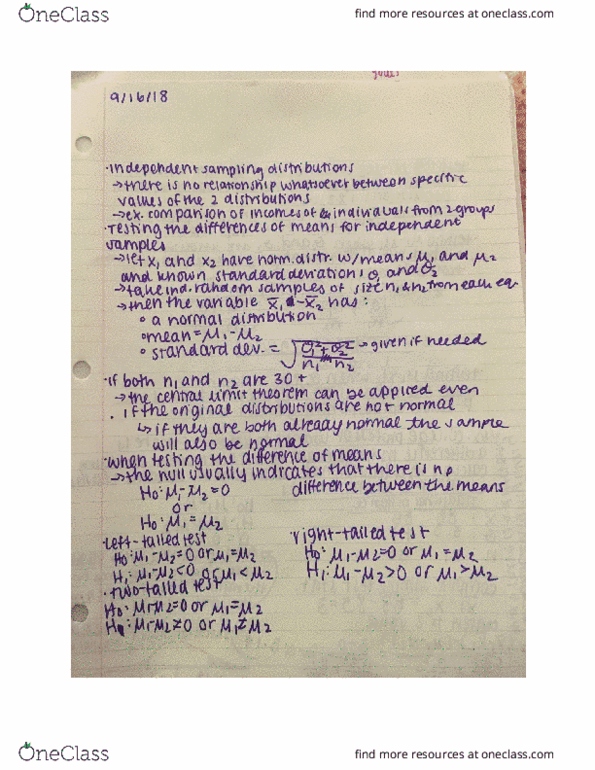 OneClass
find more resources at oneclass.com
9/16/18
·Independent sampling distributions
→there is no relationship whatsoever between specific
values of the 2 distributions
→ex. comparison of incomes of individuals from 2 groups
·Testing the differences of means for independent
samples
→let x₁ and x₂ have norm. distr. w/ means μ₁ and μ₂
and known standard deviations σ₁ and σ₂
→take ind. random samples of size n₁ & n₂ from each
→then the variable x̄₁ - x̄₂ has:
° a normal distribution
°mean = μ₁-μ₂
° standard dev. = √(σ₁²/n₁ + σ₂²/n₂) → given if needed
·if both n₁ and n₂ are 30+
→the central limit theorem can be applied even
if the original distributions are not normal
↳ if they are both already normal the sample
will also be normal
·when testing the difference of means
→the null usually indicates that there is no
difference between the means
H₀: μ₁-μ₂=0
or
H₀: μ₁=μ₂
·left-tailed test
H₀: μ₁-μ₂=0 or μ₁=μ₂
H₁: μ₁-μ₂<0 or μ₁<μ₂
·right-tailed test
H₀: μ₁-μ₂=0 or μ₁=μ₂
H₁: μ₁-μ₂>0 or μ₁>μ₂
·two-tailed test
H₀: μ₁-μ₂=0 or μ₁=μ₂
H₁: μ₁-μ₂≠0 or μ₁≠μ₂
OneClass
find more resources at oneclass.com